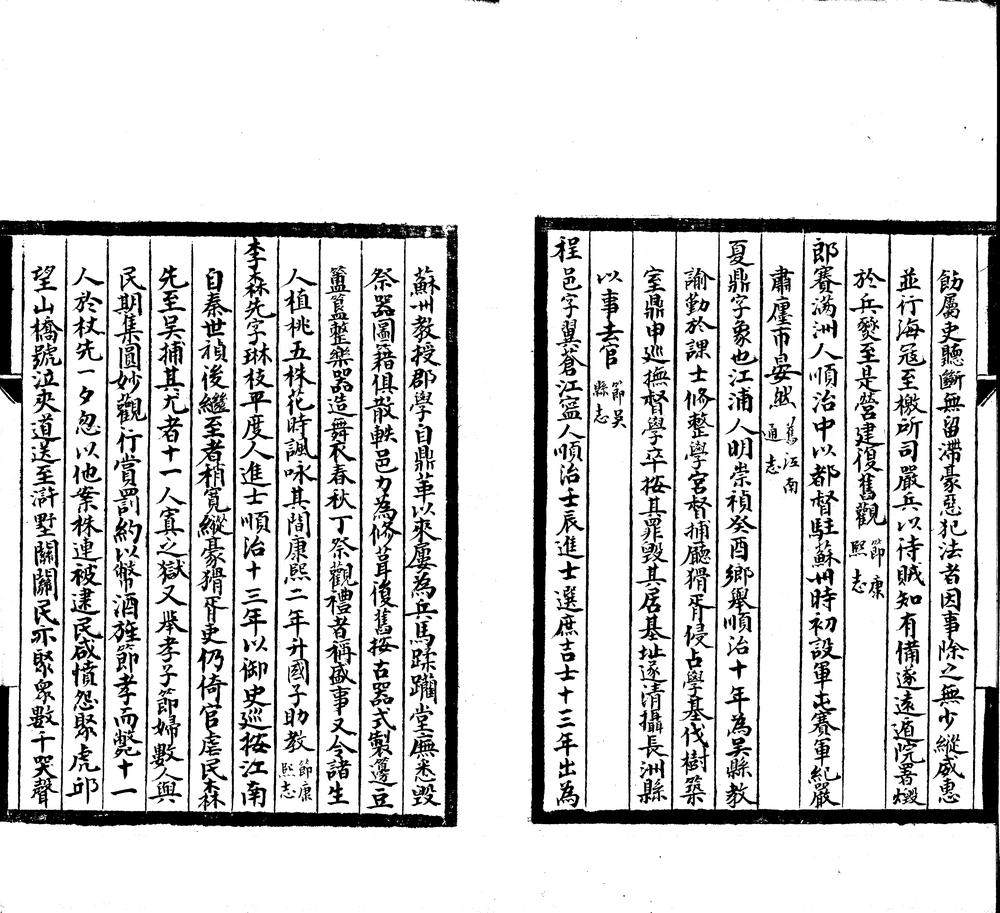 飭屬吏聽斷無留滯豪惡犯法者因事除之無少縱威惠
並行海寇至檄所司嚴兵以待賊知有備遂遠遁院署燬
於兵燹至是營建復舊觀節康熙志
郎賽滿洲人順治中以都督駐蘇州時初設軍屯賽軍紀嚴
肅廛市晏然舊江南通志
夏鼎字象也江浦人明崇禎癸酉鄉舉順治十年為吳縣教
諭勤於課士修整學宮督捕廳猾胥侵占學基伐樹築
室鼎申巡撫督學卒按其罪毀其居基址遂清攝長洲縣
以事去官節吳縣志
程邑字翼蒼江寧人順治壬辰進士選庶吉士十三年出為
蘇州教授郡學自鼎革以來屢為兵馬蹂躪堂廡悉毀
祭器圖籍俱散軼邑力為修葺復舊按古器式製籩豆
簠簋整樂器造舞衣春秋丁祭觀禮者稱盛事又令諸生
人植桃五株花時諷咏其間康熙二年升國子助教節康熙志
李森先字琳枝平度人進士順治十三年以御史巡按江南
自秦世禎後繼至者稍寬縱豪猾胥吏仍倚官虐民森
先至吳捕其尤者十一人寘之獄又舉孝子節婦數人與
民期集圓妙觀行賞罰約以幣酒旌節孝而斃十一
人於杖先一夕忽以他案株連被逮民咸憤怨聚虎邱
望山橋號泣夾道送至滸墅關關民亦聚眾數千哭聲